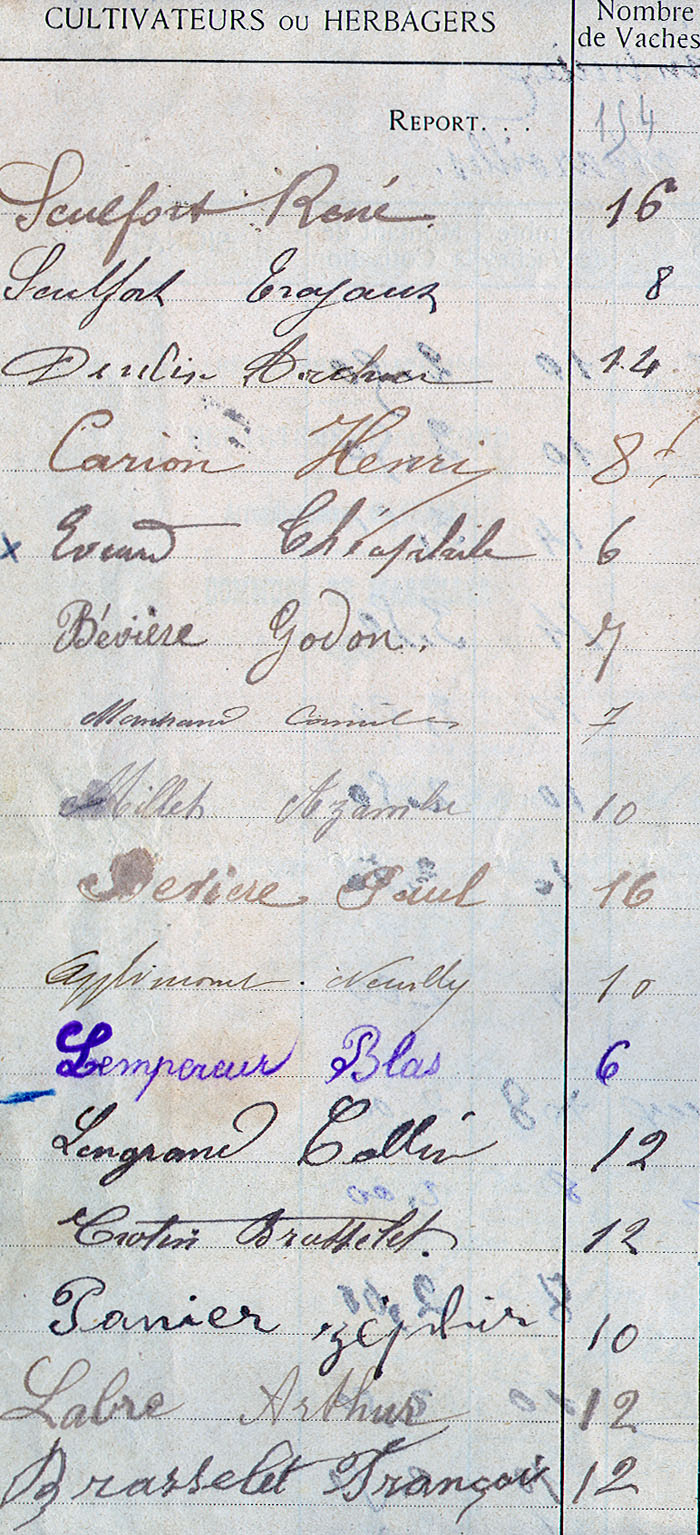 CULTIVATEURS OU HERBAGERS
Nombre
de Vaches
REPORT. . . 154
Sculfort René 16
Sculfort 8
14
Carion Henri 8
x Evrard Théophile 6
Bévière Godon. 7
Camille 7
Millet Azambre 10
Bevière Paul 16
Applincourt. Neuilly 10
Lempereur Blas 6
Lengrand Collin 12
Crotin Brasselet. 12
Panier zéphir 10
Labre Arthur 12
Brasselet François 12